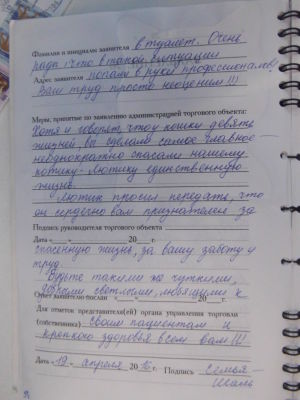 Фамилия и инициалы заявителя в туалет. Очень
рады что в такой ситуации
Адрес заявителя попали в руки профессионалов!
Ваш труд просто неоценим!!!
Меры, принятые по заявлению администрацией торгового объекта:
Хотя и говорят, что у кошки девять
жизней, вы сделали самое главное —
неоднократно спасали нашему
котику - Лютику единственную
жизнь.
Лютик просил передать, что
он сердечно вам признателен за
Подпись руководителя торгового объекта
Дата « » 20 г.
спасенную жизнь, за вашу заботу и
труд.
Будьте такими же чуткими,
добрыми светлыми, любящими к
Ответ заявителю послан « » 20 г.
Для отметок представителя(ей) органа управления торговли
(собственника) своим пациентам и
крепкого здоровья всем вам!!!
Дата «19» апреля 2016 г. Подпись семья-